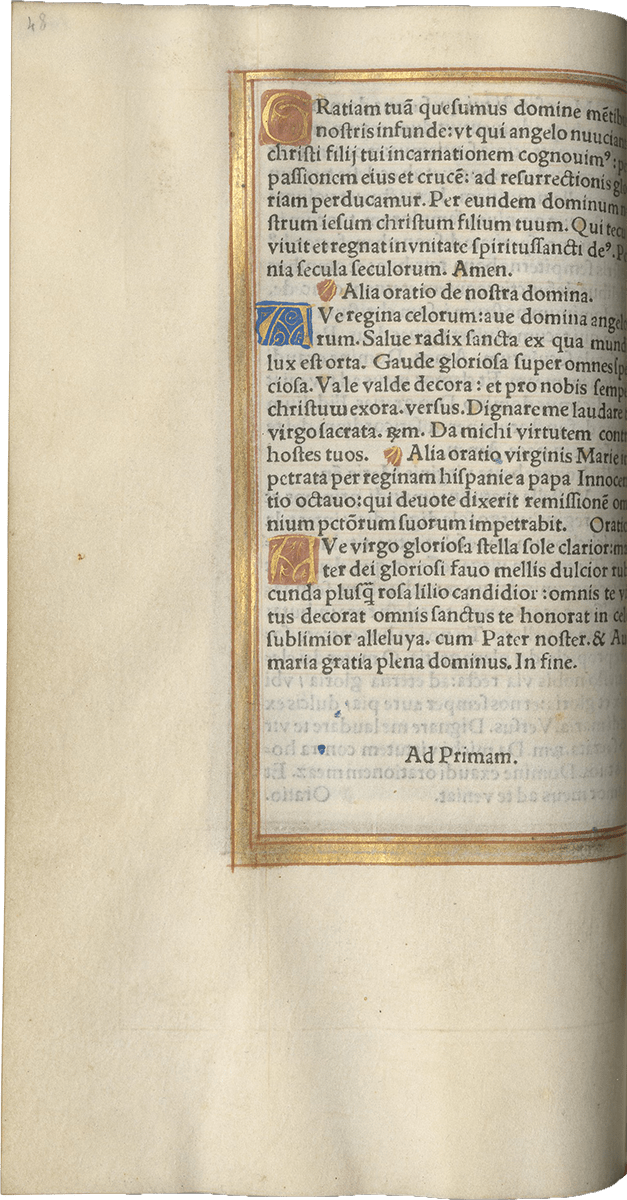 48
GRatiam tuā quesumus domine mētibu
nostris infunde: vt qui angelo nunciante
christi filij tui incarnationem cognouimꝰ: p
passionem eius et crucē: ad resurrectionis glo
riam perducamur. Per eundem dominum n
strum iesum christum filium tuum. Qui tecu
viuit et regnat in vnitate spiritussancti deꝰ. P
nia secula seculorum. Amen.
Alia oratio de nostra domina.
AVe regina celorum: aue domina angelo
rum. Salue radix sancta ex qua mund
lux est orta. Gaude gloriosa super omnes spe
ciosa. Vale valde decora: et pro nobis sempe
christum exora. versus. Dignare me laudare t
virgo sacrata. ꝶm. Da michi virtutem cont
hostes tuos. Alia oratio virginis Marie im
petrata per reginam hispanie a papa Innocen
tio octauo: qui deuote dixerit remissionē om
nium pctōrum suorum impetrabit. Oratio
AVe virgo gloriosa stella sole clarior: ma
ter dei gloriosi fauo mellis dulcior rub
cunda plusq̄ rosa lilio candidior: omnis te vi
tus decorat omnis sanctus te honorat in cel
sublimior alleluya. cum Pater noster. & Au
maria gratia plena dominus. In fine.
Ad Primam.